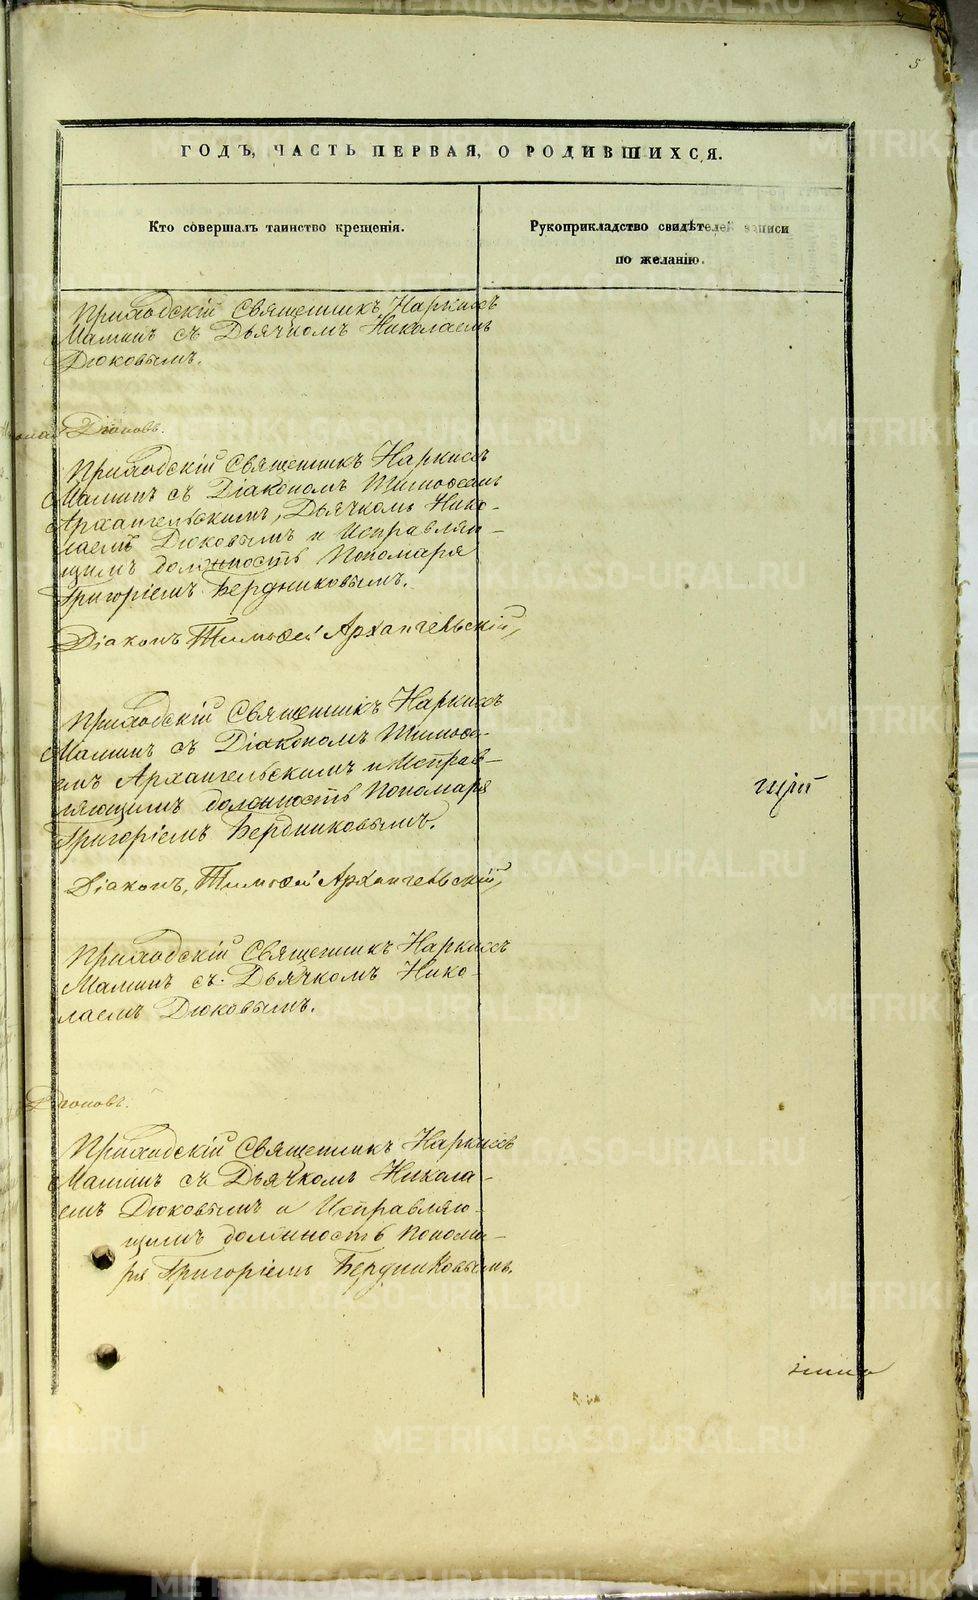 5
ГОДЪ, ЧАСТЬ ПЕРВАЯ, О РОДИВШИХСЯ.
Кто совершалъ таинство крещенія.
Рукоприкладство свидѣтелей записи
по желанію.
Приходскій Священникъ Наркиссъ
Маминъ съ Дьячкомъ Николаемъ
Дюковымъ.
Дюковъ.
Приходскій Священникъ Наркиссъ
Маминъ съ Діакономъ Тимоѳеемъ
Архангельскимъ, Дьячкомъ Нико-
лаемъ Дюковымъ и Исправляю-
щимъ должность Пономаря
Григоріемъ Бердниковымъ.
Діаконъ Тимоѳей Архангельскій,
Приходскій Священникъ Наркиссъ
Маминъ съ Діакономъ Тимоѳе-
емъ Архангельскимъ и Исправ-
ляющимъ должность Пономаря
Григоріемъ Бердниковымъ.
щій
Діаконъ, Тимоѳей Архангельскій,
Приходскій Священникъ Наркиссъ
Маминъ съ Дьячкомъ Нико-
лаемъ Дюковымъ.
Дюковъ.
Приходскій Священникъ Наркиссъ
Маминъ съ Дьячкомъ Никола-
емъ Дюковымъ и Исправляю-
щимъ должность Понома-
ря Григоріемъ Бердниковымъ.
METRIKI.GASO-URAL.RU